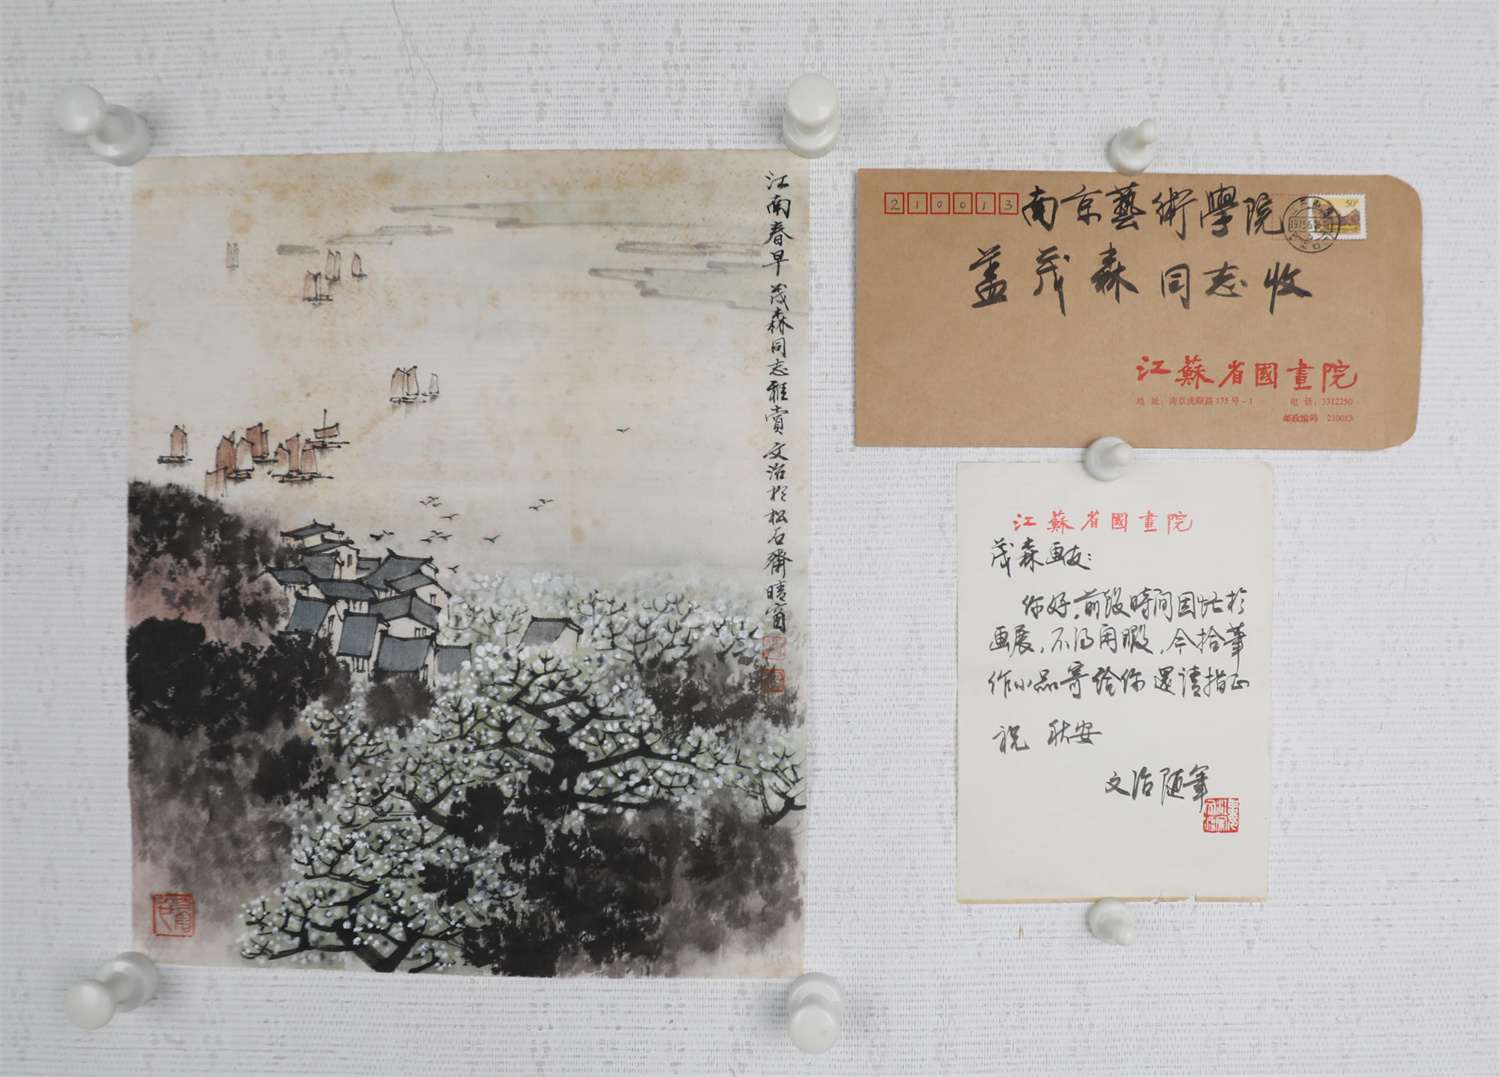 江南春早 茂森同志雅赏 文治於松石齋晴窗
210013
南京藝術學院
盖茂森同志收
50分
江蘇省國畫院
地 址：南京虎踞路175号-1 电 话：3312250
邮政编码 210013
江蘇省國畫院
茂森画友：
你好。前段時間因忙於
画展，不得闲暇，今拾筆
作小品寄给你 還請指正
祝 秋安
文治随筆